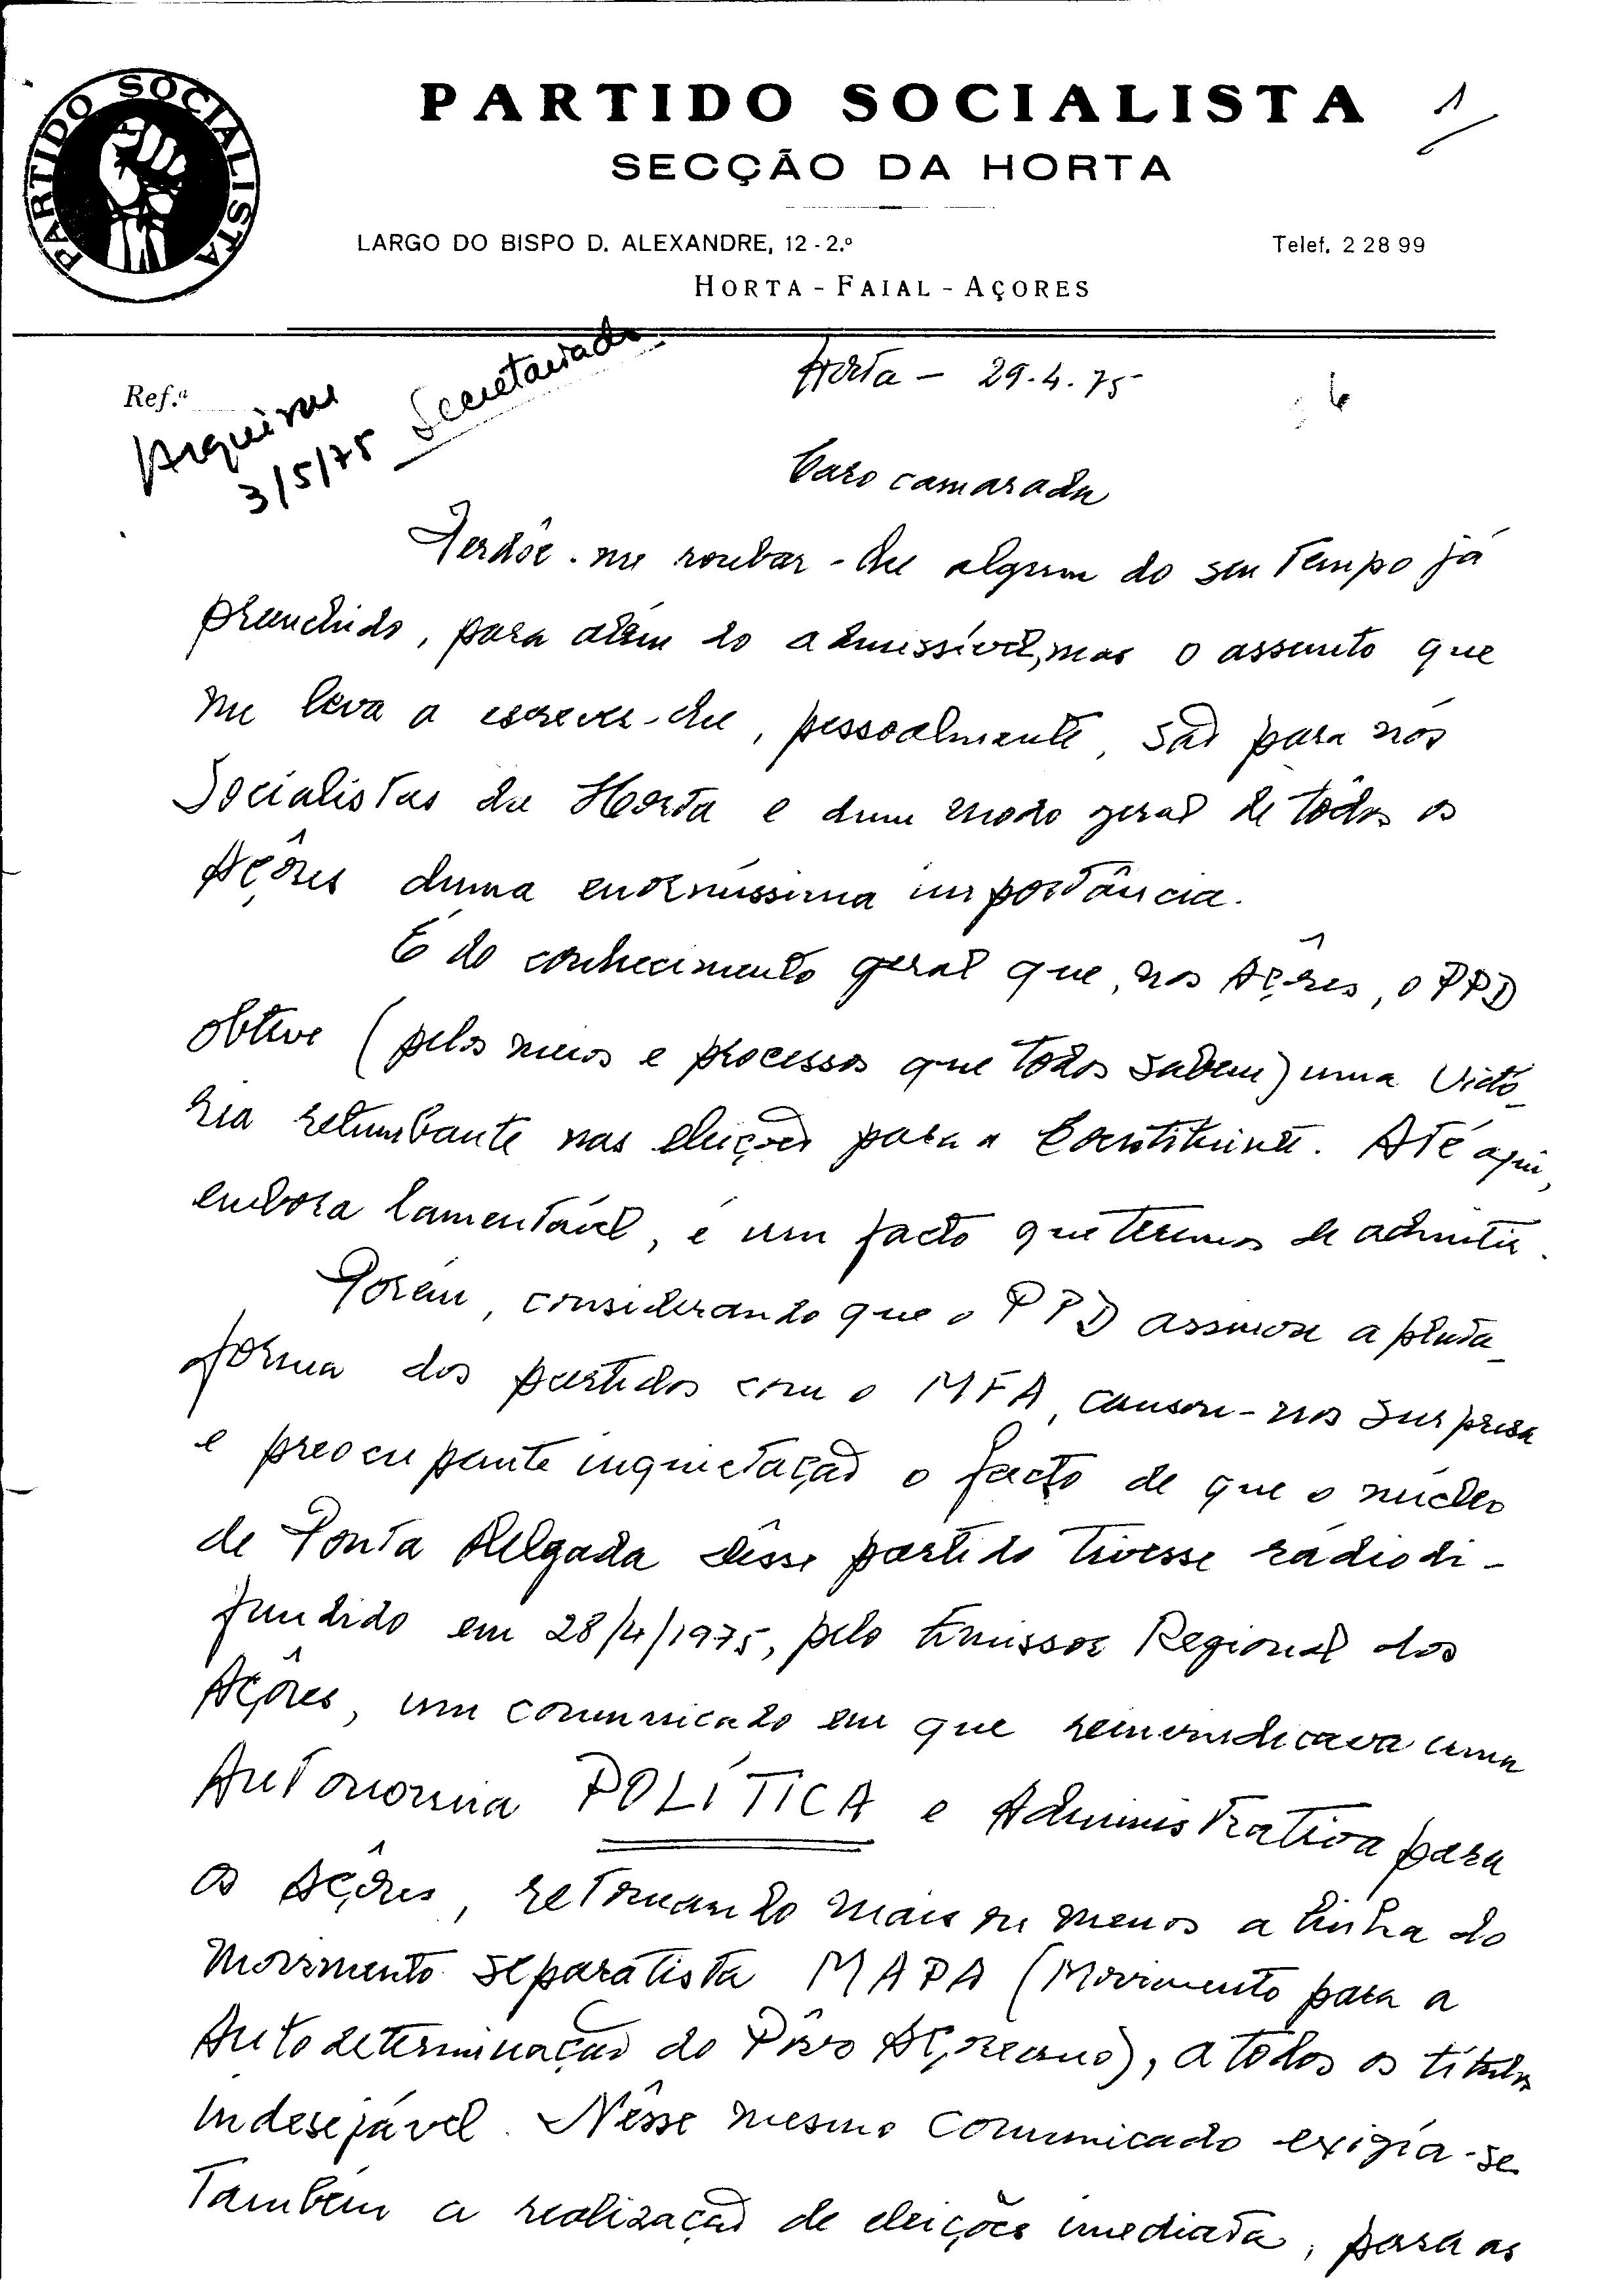 PARTIDO SOCIALISTA
PARTIDO SOCIALISTA
1/
SECÇÃO DA HORTA
LARGO DO BISPO D. ALEXANDRE, 12 - 2.º
Telef. 2 28 99
HORTA - FAIAL - AÇORES
Ref.ª
Arquivar
3/5/75 Secretariado
Horta - 29.4.75
Caro camarada
Perdôe-me roubar-lhe algum do seu tempo já
preenchido, para além do admissível, mas o assunto que
me leva a escrever-lhe, pessoalmente, são para nós
Socialistas da Horta e dum modo geral de todos os
Açôres duma enormíssima importância.
É do conhecimento geral que, nos Açôres, o PPD
obteve (pelos meios e processos que todos sabem) uma Victó-
ria retumbante nas eleições para a Constituinte. Até aqui,
embora lamentável, é um facto que teremos de admitir.
Porém, considerando que o PPD assinou a plata-
forma dos partidos com o MFA, causou-nos surpresa
e preocupante inquietação o facto de que o núcleo
de Ponta Delgada dêsse partido tivesse radiodi-
fundido em 28/4/1975, pelo Emissor Regional dos
Açôres, um comunicado em que reinvindicava uma
Autonomia POLÍTICA e Administrativa para
os Açôres, retomando mais ou menos a linha do
movimento separatista MAPA (Movimento para a
Autodeterminação do Pôvo Açoreano), a todos os títulos
indesejável. Nêsse mesmo comunicado exigia-se
também a realização de eleições imediata, para as